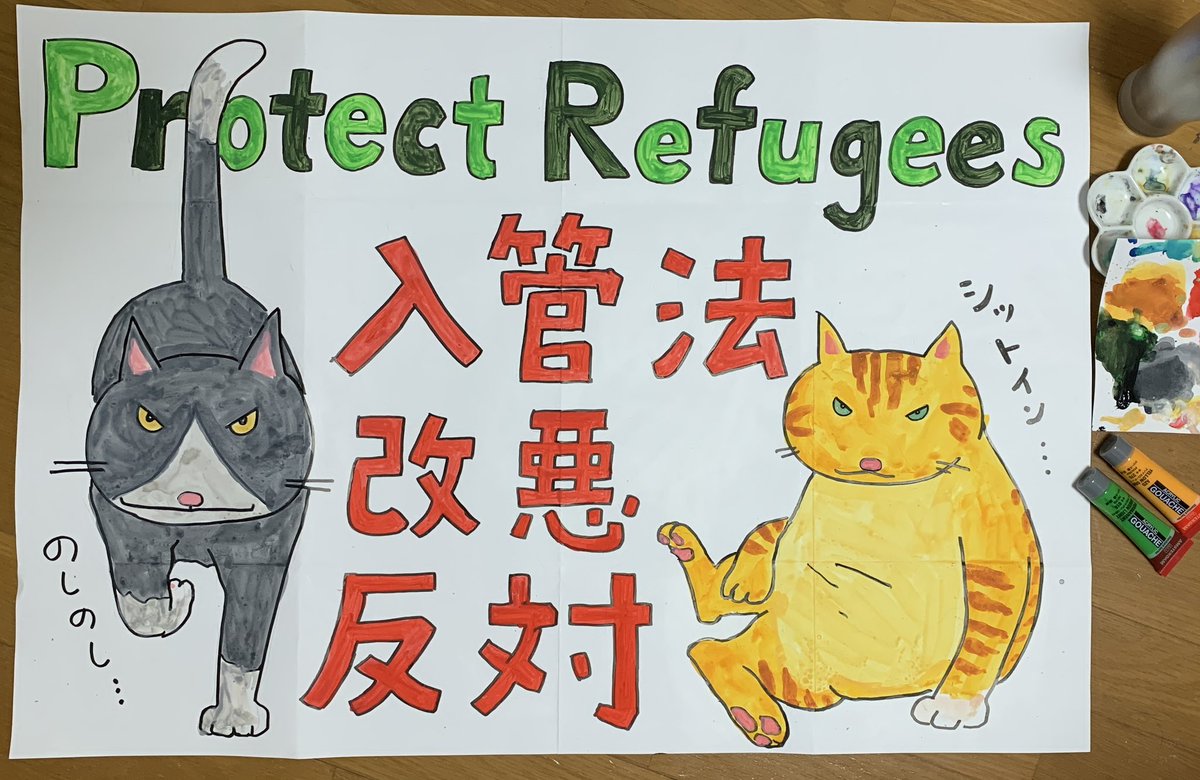 Protect Refugees
入管法
改悪
反対
シットイン...
のしのし...
ACRYLIC
GOUACHE
GOUACHE